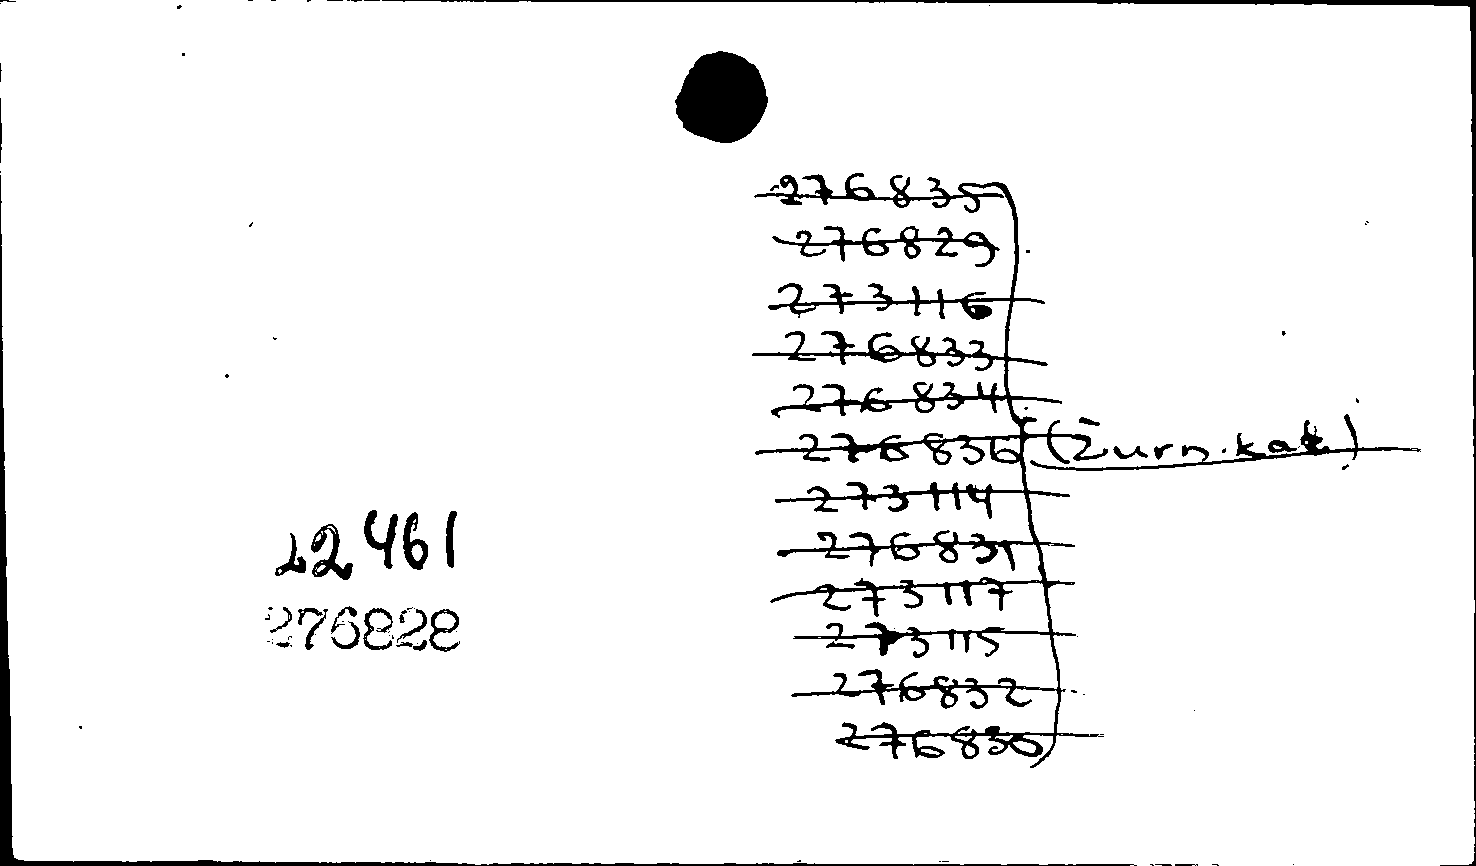 276835
276829
273116
276833
276834
276836 (Žurn. kat.)
273114
276831
273117
273115
276832
276830
22461
276828